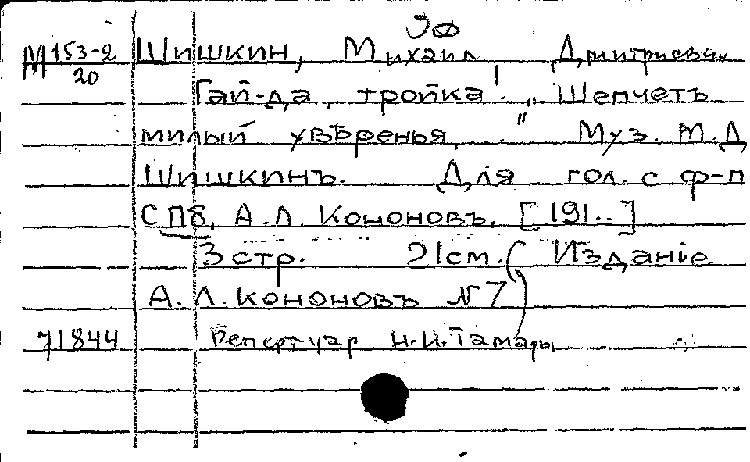 ЭФ
М 153-2
20
Шишкин, Михаил Дмитриевич
Гай-да, тройка! „Шепчетъ
милый увѣренья." Муз. М.Д.
Шишкинъ. Для гол. с ф-п
СПб, А.Л. Кононовъ, [191..]
3 стр. 21см. (Издание
А.Л. Кононовъ N 7)
71844 Репертуар Н.И. Тамары